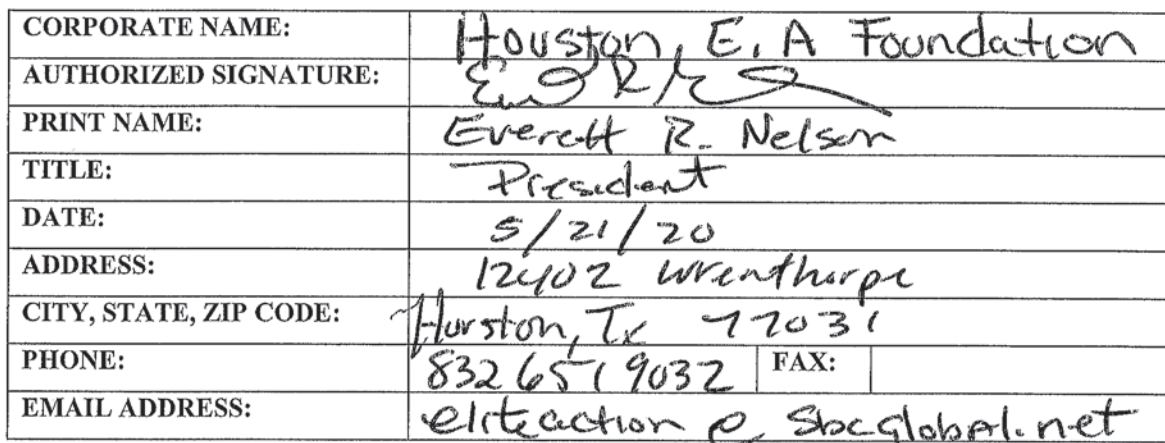 CORPORATE NAME: Houston, E, A Foundation
AUTHORIZED SIGNATURE:
PRINT NAME: Everett R. Nelson
TITLE: President
DATE: 5/21/20
ADDRESS: 12402 Wrenthorpe
CITY, STATE, ZIP CODE: Houston, Tx 77031
PHONE: 832 651 9032 FAX:
EMAIL ADDRESS: eliteaction @ sbcglobal.net